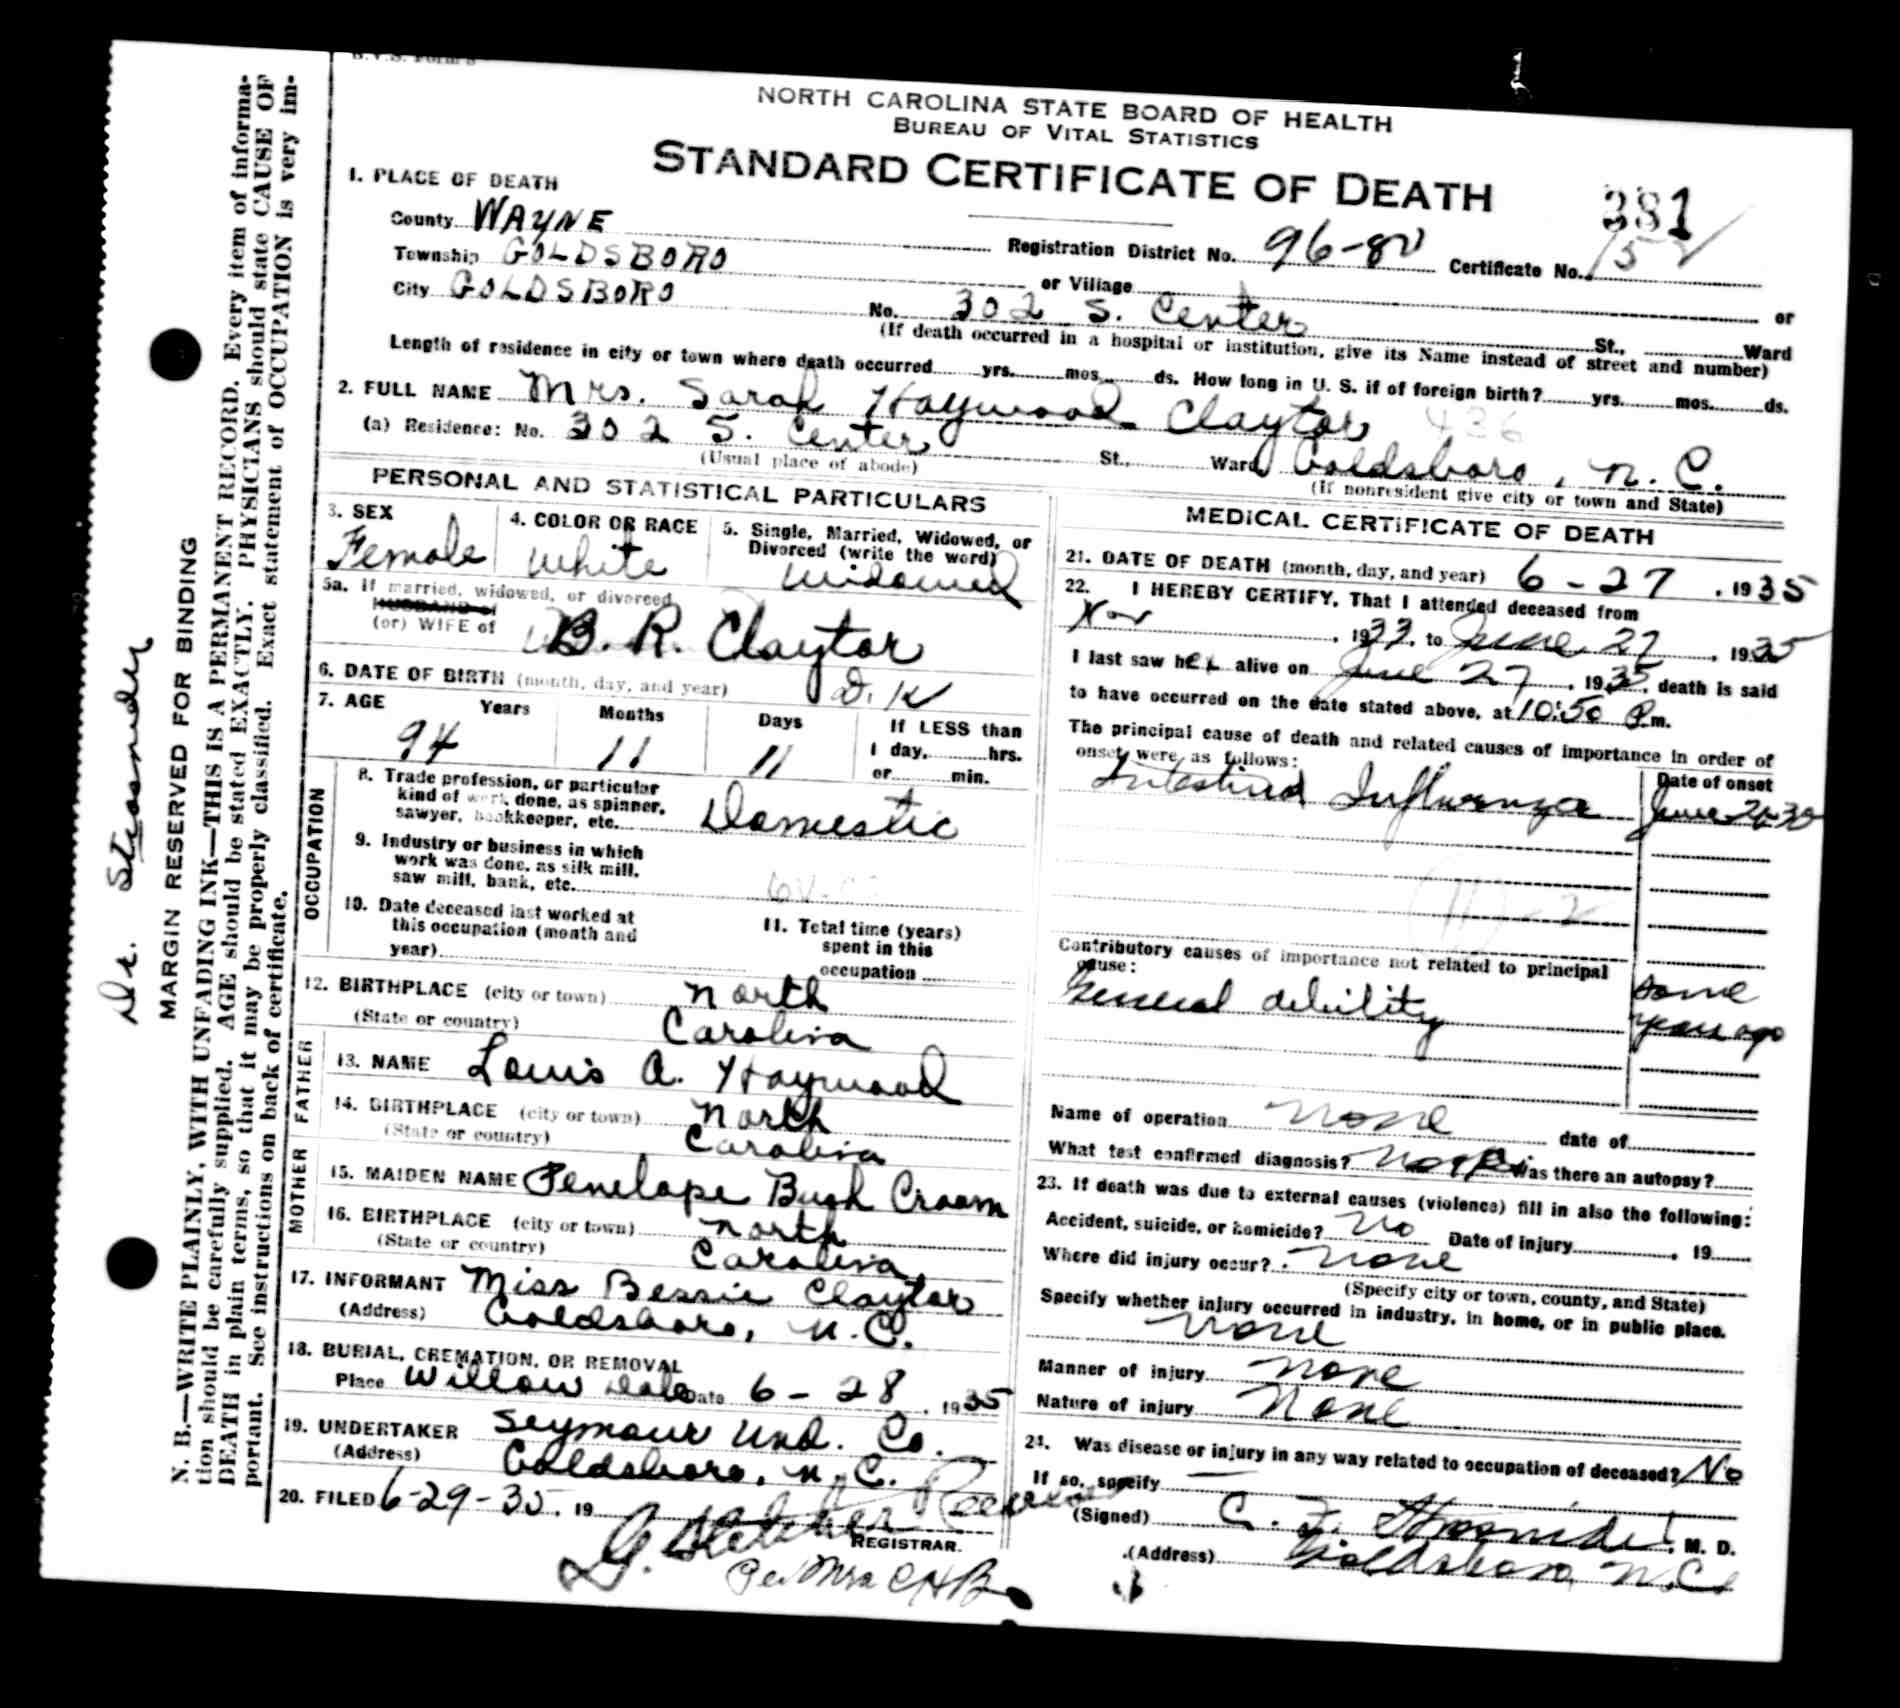 B.V.S. Form 8
NORTH CAROLINA STATE BOARD OF HEALTH
BUREAU OF VITAL STATISTICS
STANDARD CERTIFICATE OF DEATH
381
1. PLACE OF DEATH
County WAYNE Registration District No. 96-80 Certificate No. 152
Township GOLDSBORO or Village or
City GOLDSBORO No. 302 S. Center St., Ward
(If death occurred in a hospital or institution, give its Name instead of street and number)
Length of residence in city or town where death occurred yrs. mos. ds. How long in U. S. if of foreign birth? yrs. mos. ds.
2. FULL NAME Mrs. Sarah Haywood Claytor 436
(a) Residence: No. 302 S. Center St., Ward, Goldsboro, N. C.
(Usual place of abode) (If nonresident give city or town and State)
PERSONAL AND STATISTICAL PARTICULARS
3. SEX Female
4. COLOR OR RACE White
5. Single, Married, Widowed, or
Divorced (write the word)
Widowed
5a. If married, widowed, or divorced
HUSBAND of
(or) WIFE of B. R. Claytor
6. DATE OF BIRTH (month, day, and year) D. K
7. AGE Years Months Days If LESS than
94 11 11 1 day, hrs.
or min.
OCCUPATION
8. Trade profession, or particular
kind of work done, as spinner,
sawyer, bookkeeper, etc. Domestic
9. Industry or business in which
work was done, as silk mill,
saw mill, bank, etc.
10. Date deceased last worked at
this occupation (month and
year)
11. Total time (years)
spent in this
occupation
12. BIRTHPLACE (city or town) North
(State or country) Carolina
FATHER
13. NAME Louis A. Haywood
14. BIRTHPLACE (city or town) North
(State or country) Carolina
MOTHER
15. MAIDEN NAME Penelope Bush Croom
16. BIRTHPLACE (city or town) North
(State or country) Carolina
17. INFORMANT Miss Bessie Claytor
(Address) Goldsboro, N. C.
18. BURIAL, CREMATION, OR REMOVAL
Place Willow Dale Date 6 - 28, 1935
19. UNDERTAKER Seymour Und. Co.
(Address) Goldsboro, N. C.
20. FILED 6-29-35, 19
G. Fletcher Reeves
REGISTRAR.
Per Mrs C H B
MEDICAL CERTIFICATE OF DEATH
21. DATE OF DEATH (month, day, and year) 6 - 27, 1935
22. I HEREBY CERTIFY, That I attended deceased from
Nov, 1933, to June 27, 1935
I last saw her alive on June 27, 1935, death is said
to have occurred on the date stated above, at 10:50 P.m.
The principal cause of death and related causes of importance in order of
onset were as follows:
Date of onset
Intestinal Influenza June 26-35
Contributory causes of importance not related to principal
cause:
General debility some
years ago
Name of operation None date of
What test confirmed diagnosis? Was there an autopsy?
23. If death was due to external causes (violence) fill in also the following:
Accident, suicide, or homicide? No Date of injury, 19
Where did injury occur? None
(Specify city or town, county, and State)
Specify whether injury occurred in industry, in home, or in public place.
None
Manner of injury None
Nature of injury None
24. Was disease or injury in any way related to occupation of deceased? No
If so, specify
(Signed) C. F. Strosnider, M. D.
(Address) Goldsboro, N.C.
Dr. Strosnider
MARGIN RESERVED FOR BINDING
N. B.—WRITE PLAINLY, WITH UNFADING INK—THIS IS A PERMANENT RECORD. Every item of informa-
tion should be carefully supplied. AGE should be stated EXACTLY. PHYSICIANS should state CAUSE OF
DEATH in plain terms, so that it may be properly classified. Exact statement of OCCUPATION is very im-
portant. See instructions on back of certificate.